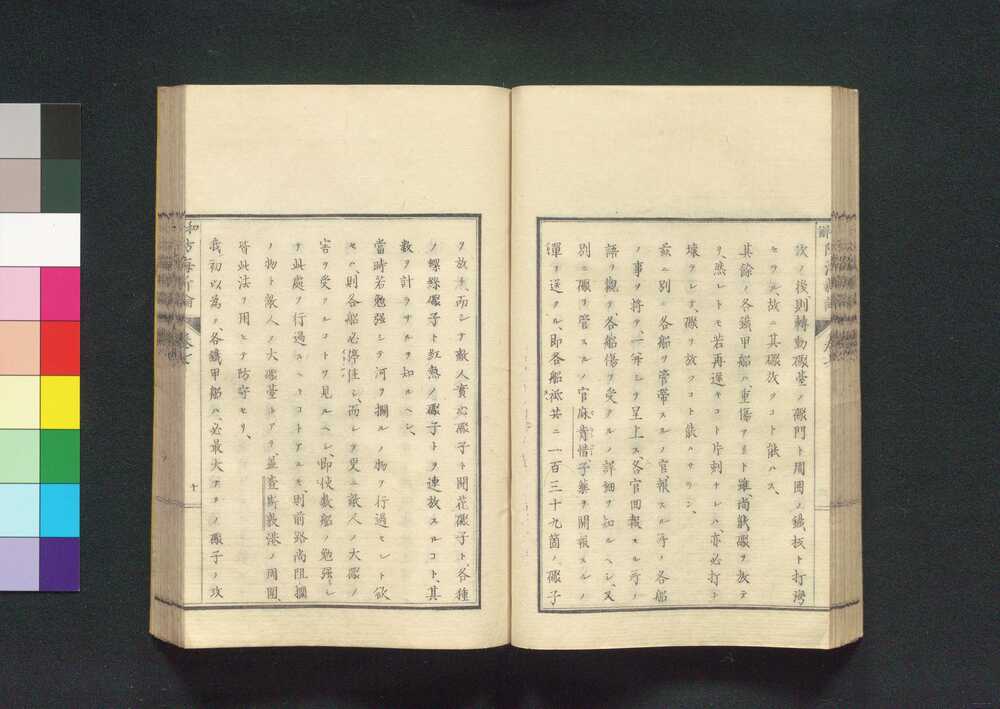 次ノ後則轉動礮臺ノ礮門ト周圍ノ鐵板ト打灣
セラル、故ニ其礮放ツコト能ハス、
其餘ノ各鐵甲船ハ、重傷アルト雖、尚能礮ヲ放テ
ヲ、然レトモ若再遲キコト片刻ナレハ、亦必打ト
壞ラレテ、礮ヲ放ツコト能ハサラン、
茲ニ別ニ各船ヲ管帶スルノ官報スル所ノ各船
ノ事ヲ將テ、一併シテ呈上ス、各官回報スル所ノ
語ヲ觀テ、各船傷ヲ受クルノ詳細ヲ知ルヘシ、又
別ニ礮ヲ管スルノ官麻肯惜子藥ヲ開報スルノ
單ヲ送クル、即各船祗共ニ一百三十九箇ノ礮子
ヲ放ス、而シテ敵人實心礮子ト開花礮子ト、各種
ノ螺絲礮子ト紅熱ノ礮子トヲ連放スルコト、其
數ヲ計ラサルヲ知ルヘシ、
當時若勉强シテ河ヲ攔ルノ物ヲ行過セント欲
セハ、則各船必停住シ、而シテ更ニ敵人ノ大礮ノ
害ヲ受クルコトヲ見ルヘシ、即使數船ノ勉强シ
テ此處ヲ行過スヘキコトアルモ、則前路尚阻攔
ノ物ト敵人ノ大礮臺トアリ、蓋查斯敦港ノ周圍、
皆此法ヲ用ヒテ防守セリ、
我初以為ク、各鐵甲船ハ、必最大ナルノ礮子ノ攻
十